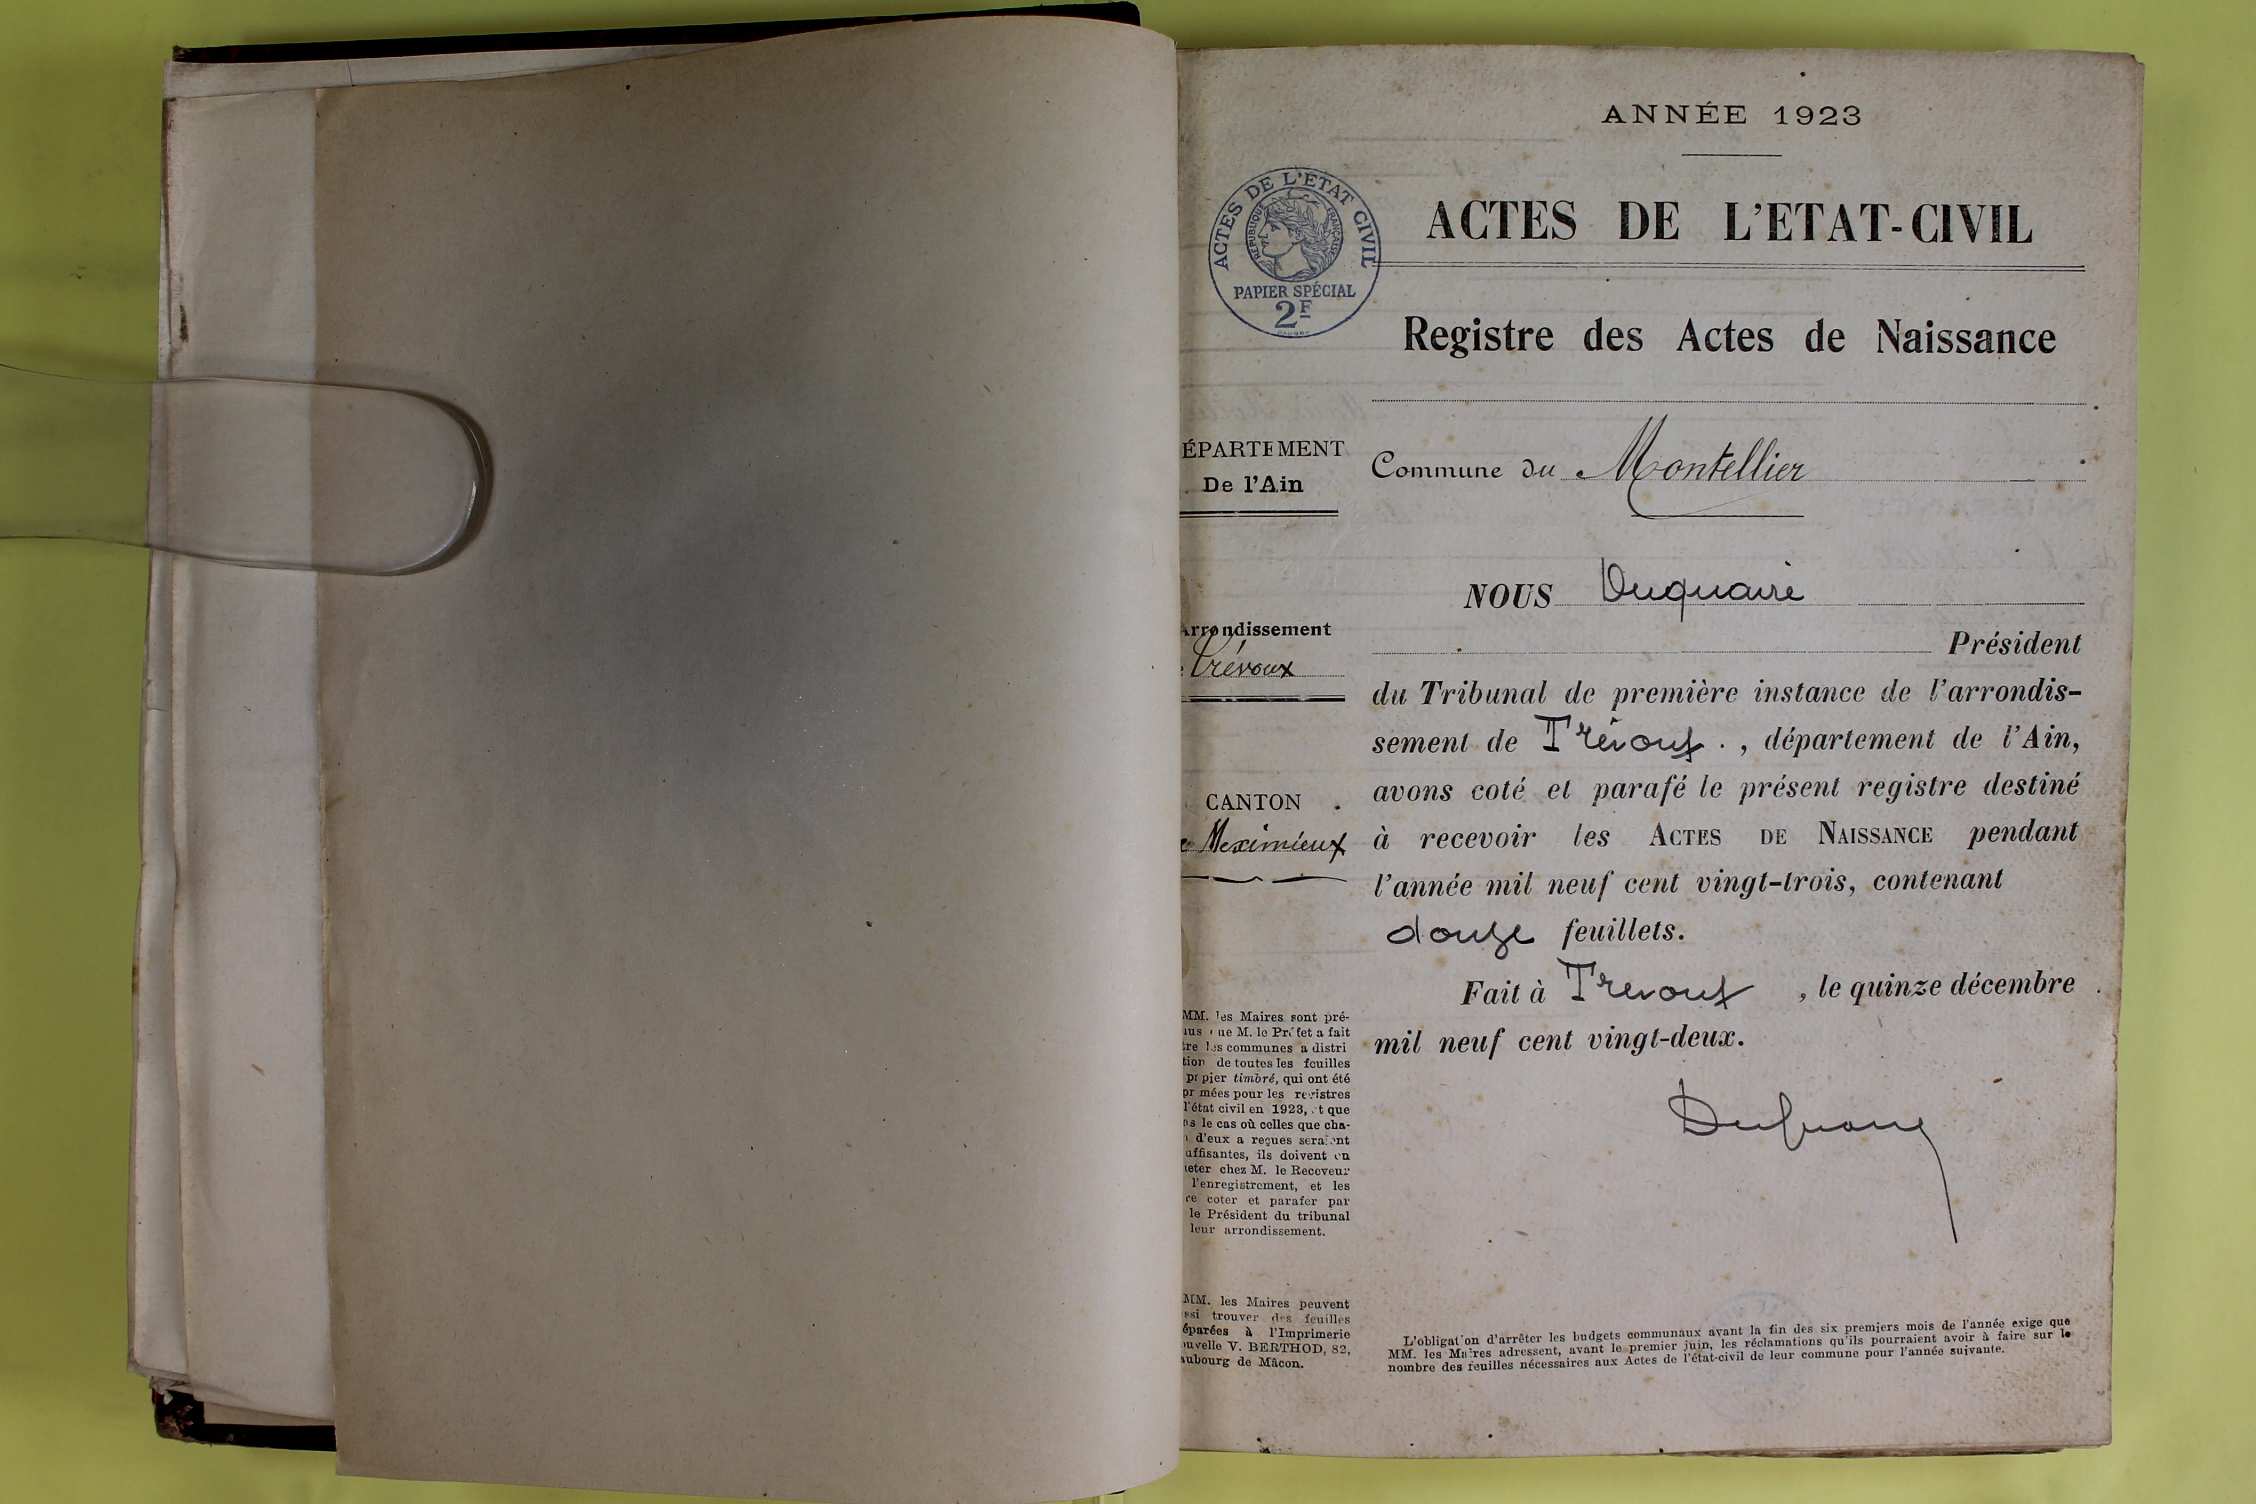 ANNÉE 1923
ACTES DE L'ETAT CIVIL
RÉPUBLIQUE FRANÇAISE
PAPIER SPÉCIAL
2F
ACTES DE L'ETAT-CIVIL
Registre des Actes de Naissance
ÉPARTEMENT
De l'Ain
Arrondissement
Trévoux
CANTON
Meximieux
MM. les Maires sont pré-
que M. le Préfet a fait
les communes a distri
tion de toutes les feuilles
papier timbré, qui ont été
mées pour les registres
l'état civil en 1923, et que
le cas où celles que cha-
d'eux a reçues seraient
uffisantes, ils doivent en
eter chez M. le Receveur
l'enregistrement, et les
re coter et parafer par
le Président du tribunal
leur arrondissement.
MM. les Maires peuvent
ssi trouver des feuilles
éparées à l'Imprimerie
ouvelle V. BERTHOD, 82,
aubourg de Mâcon.
Commune du Montellier
NOUS Duquaire
Président
du Tribunal de première instance de l'arrondis-
sement de Trévoux . , département de l'Ain,
avons coté et parafé le présent registre destiné
à recevoir les ACTES DE NAISSANCE pendant
l'année mil neuf cent vingt-trois, contenant
douze feuillets.
Fait à Trevoux , le quinze décembre
mil neuf cent vingt-deux.
L'obligation d'arrêter les budgets communaux avant la fin des six premiers mois de l'année exige que
MM. les Maires adressent, avant le premier juin, les réclamations qu'ils pourraient avoir à faire sur le
nombre des feuilles nécessaires aux Actes de l'état-civil de leur commune pour l'année suivante.